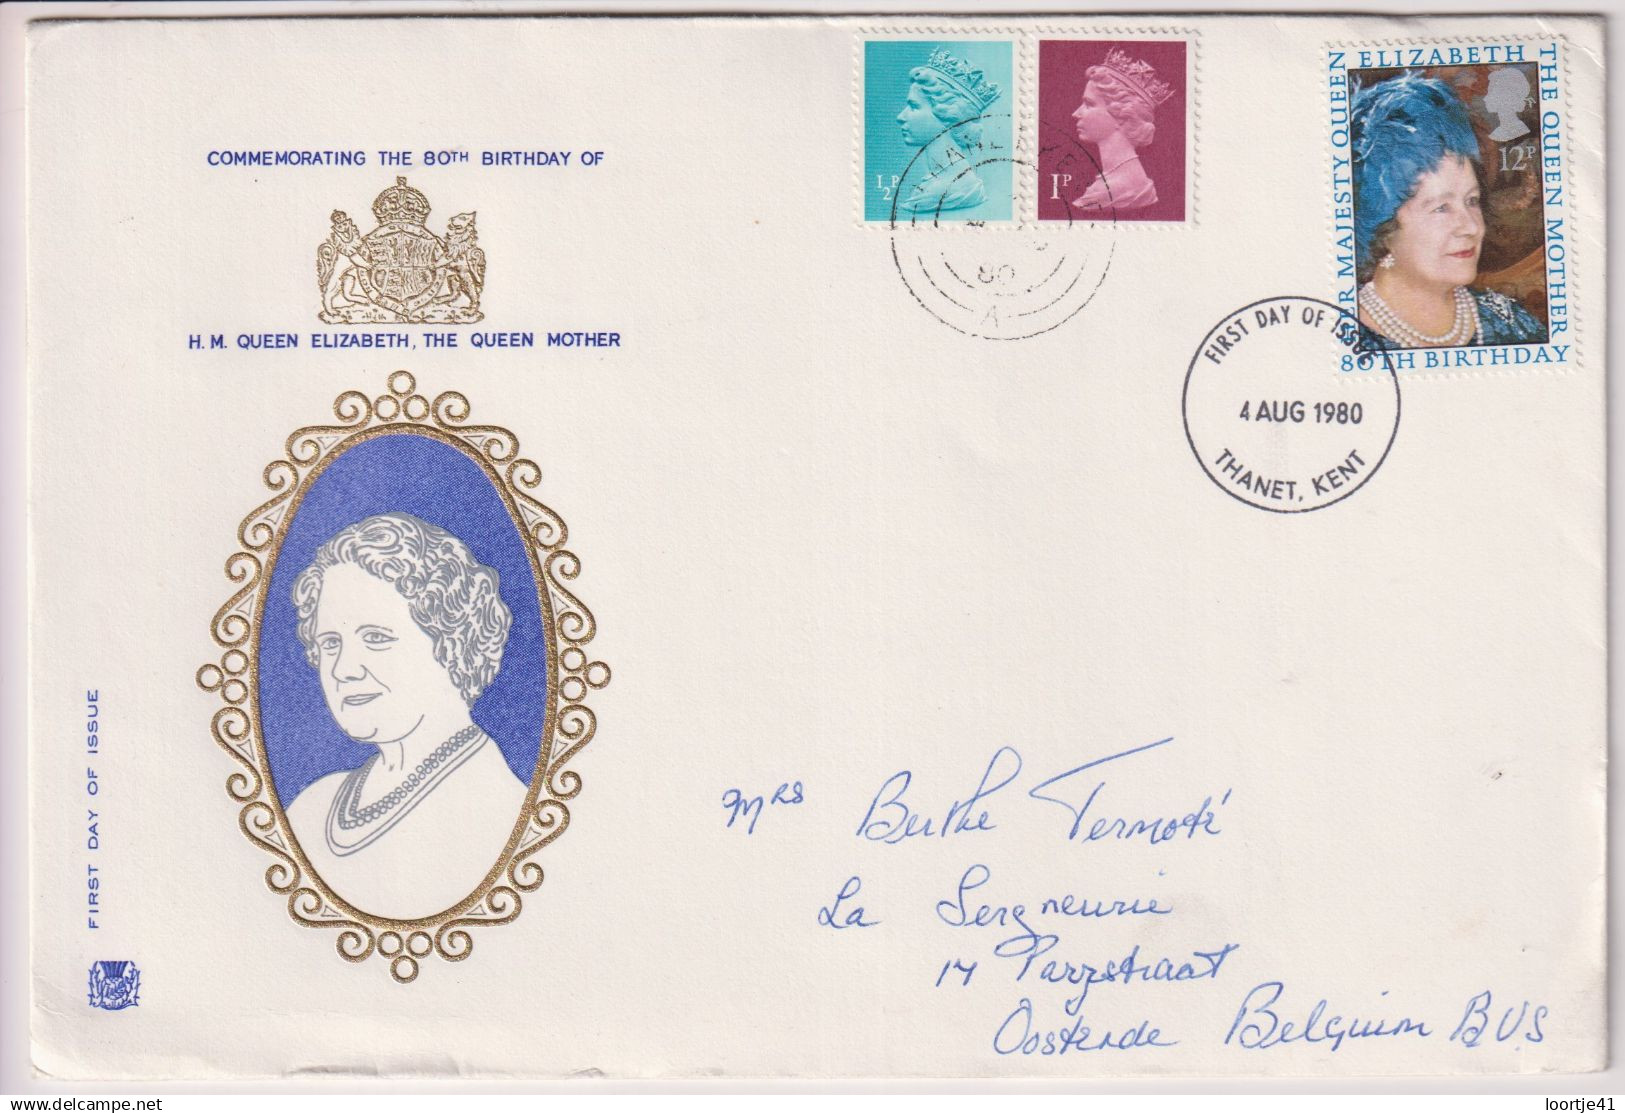 COMMEMORATING THE 80TH BIRTHDAY OF
H. M. QUEEN ELIZABETH, THE QUEEN MOTHER
FIRST DAY OF ISSUE
½P
1P
80
A
HER MAJESTY QUEEN ELIZABETH THE QUEEN MOTHER
12P
80TH BIRTHDAY
FIRST DAY OF ISSUE
4 AUG 1980
THANET, KENT
Mrs Berthe Termoté
La Seigneurie
17 Parijsstraat
Oostende Belgium BUS
www.delcampe.net
loortje41